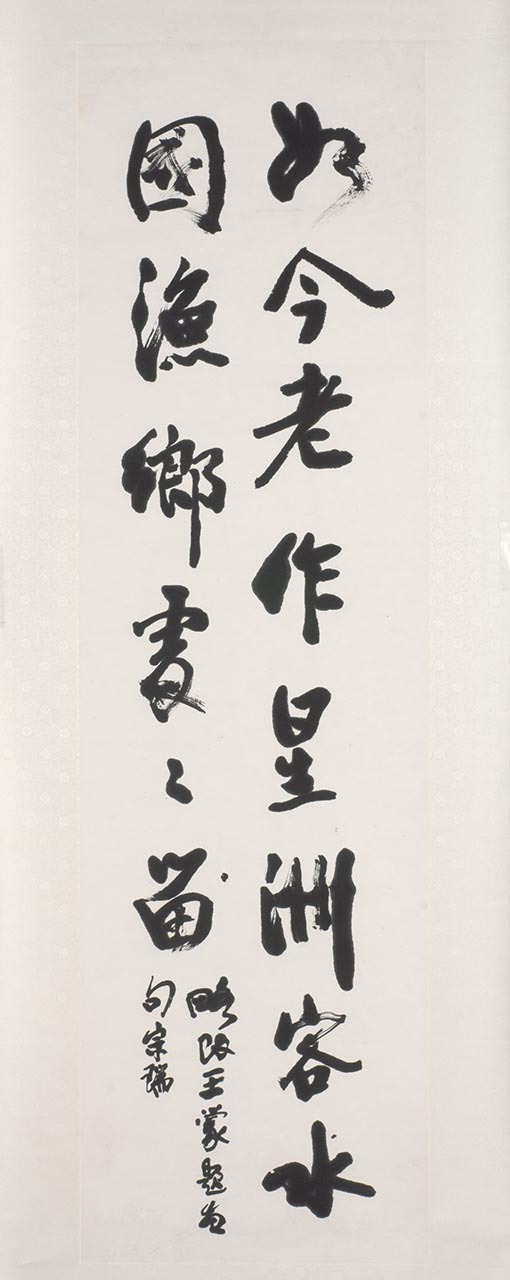 如今老作星洲客水
國漁鄉處々留
略改王蒙題畫
句宗瑞